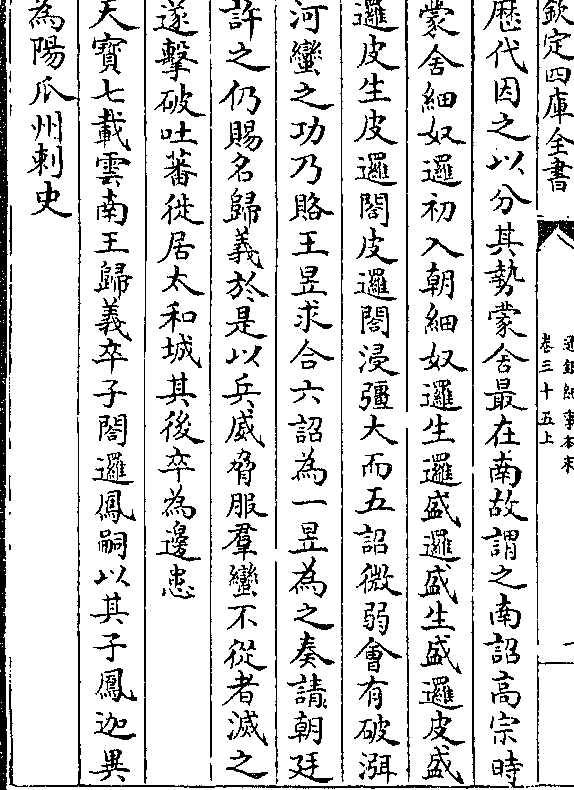 欽定四庫全書
通鑑紀事本末
卷三十五上
一
歷代因之以分其勢蒙舍最在南故謂之南詔高宗時
蒙舍細奴邏初入朝細奴邏生邏盛邏盛生盛邏皮盛
邏皮生皮邏閤皮邏閤浸彊大而五詔微弱會有破洱
河蠻之功乃賂王昱求合六詔為一昱為之奏請朝廷
許之仍賜名歸義於是以兵威脅服羣蠻不從者滅之
遂擊破吐蕃徙居太和城其後卒為邊患
天寶七載雲南王歸義卒子閤邏鳳嗣以其子鳳迦異
為陽瓜州刺史